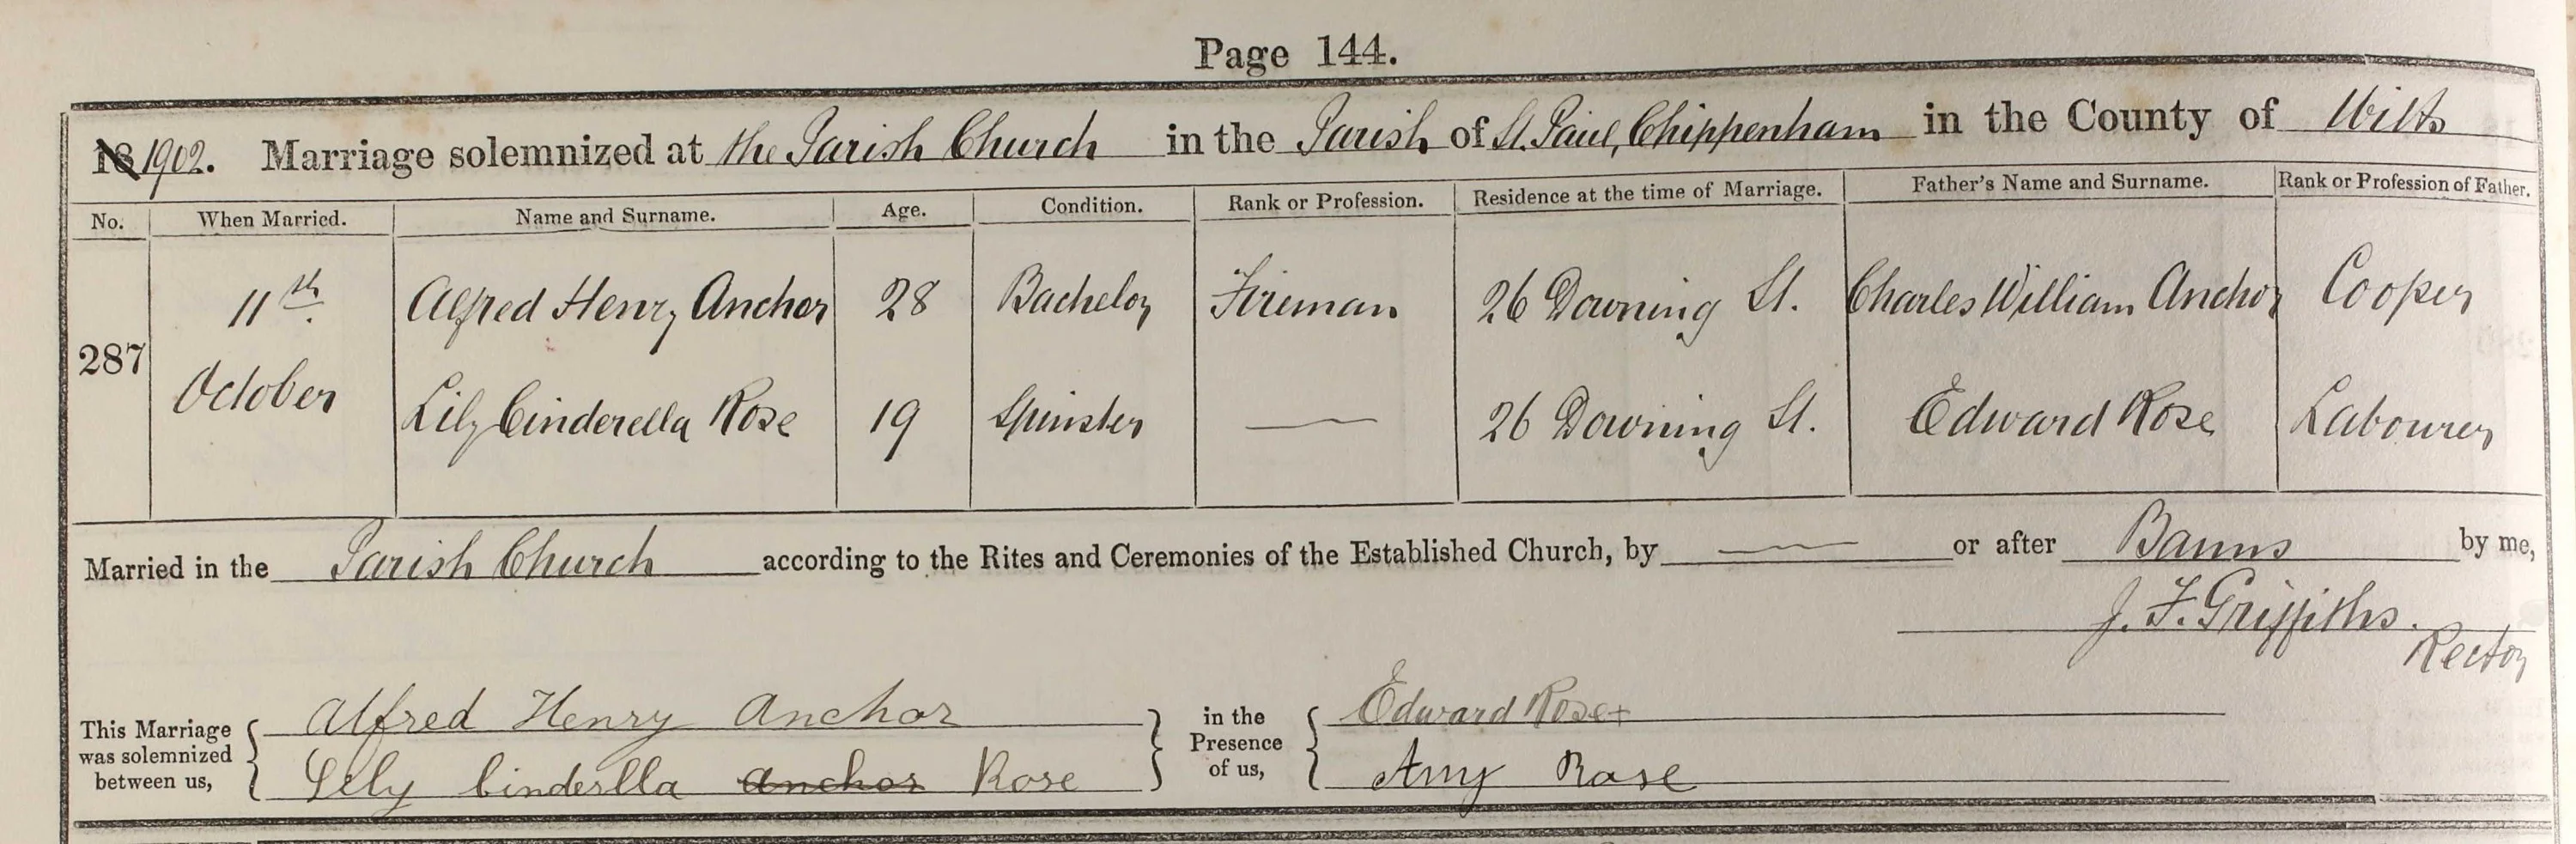 Page 144.
18 1902. Marriage solemnized at the Parish Church in the Parish of St. Paul, Chippenham in the County of Wilts
No. When Married. Name and Surname. Age. Condition. Rank or Profession. Residence at the time of Marriage. Father's Name and Surname. Rank or Profession of Father.
287
11th Alfred Henry Anchor 28 Bachelor Fireman 26 Downing St. Charles William Anchor Cooper
October Lily Cinderella Rose 19 Spinster — 26 Downing St. Edward Rose Labourer
Married in the Parish Church according to the Rites and Ceremonies of the Established Church, by — or after Banns by me,
J. F. Griffiths.
Rector
This Marriage was solemnized between us,
Alfred Henry Anchor
Lily Cinderlla Anchor Rose
in the Presence of us,
Edward Rose +
Amy Rose